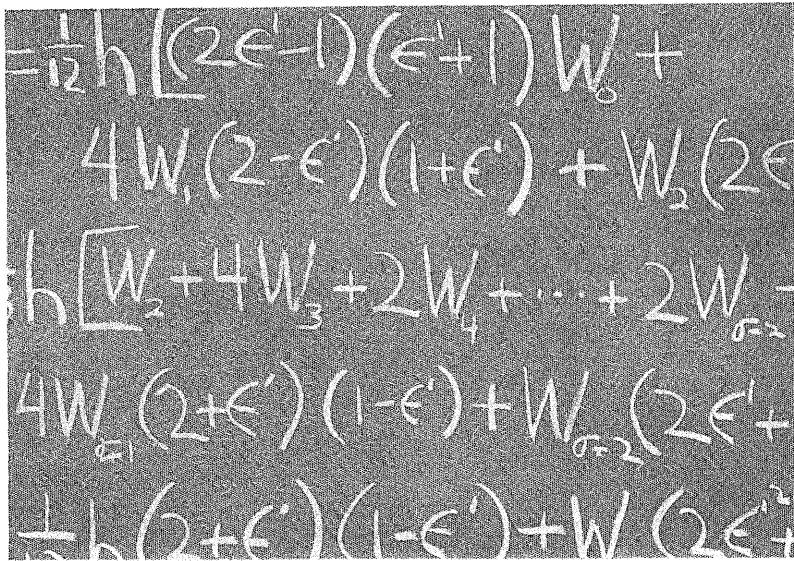 = 1/12 h [(2ϵ'-1)(ϵ'+1) W₀ +
4W₁(2-ϵ')(1+ϵ') + W₂(2ϵ
h [W₂ + 4W₃ + 2W₄ + ··· + 2W
4W (2+ϵ')(1-ϵ') + W (2ϵ' +
h(2+ϵ')(1-ϵ') + W (2ϵ'² +